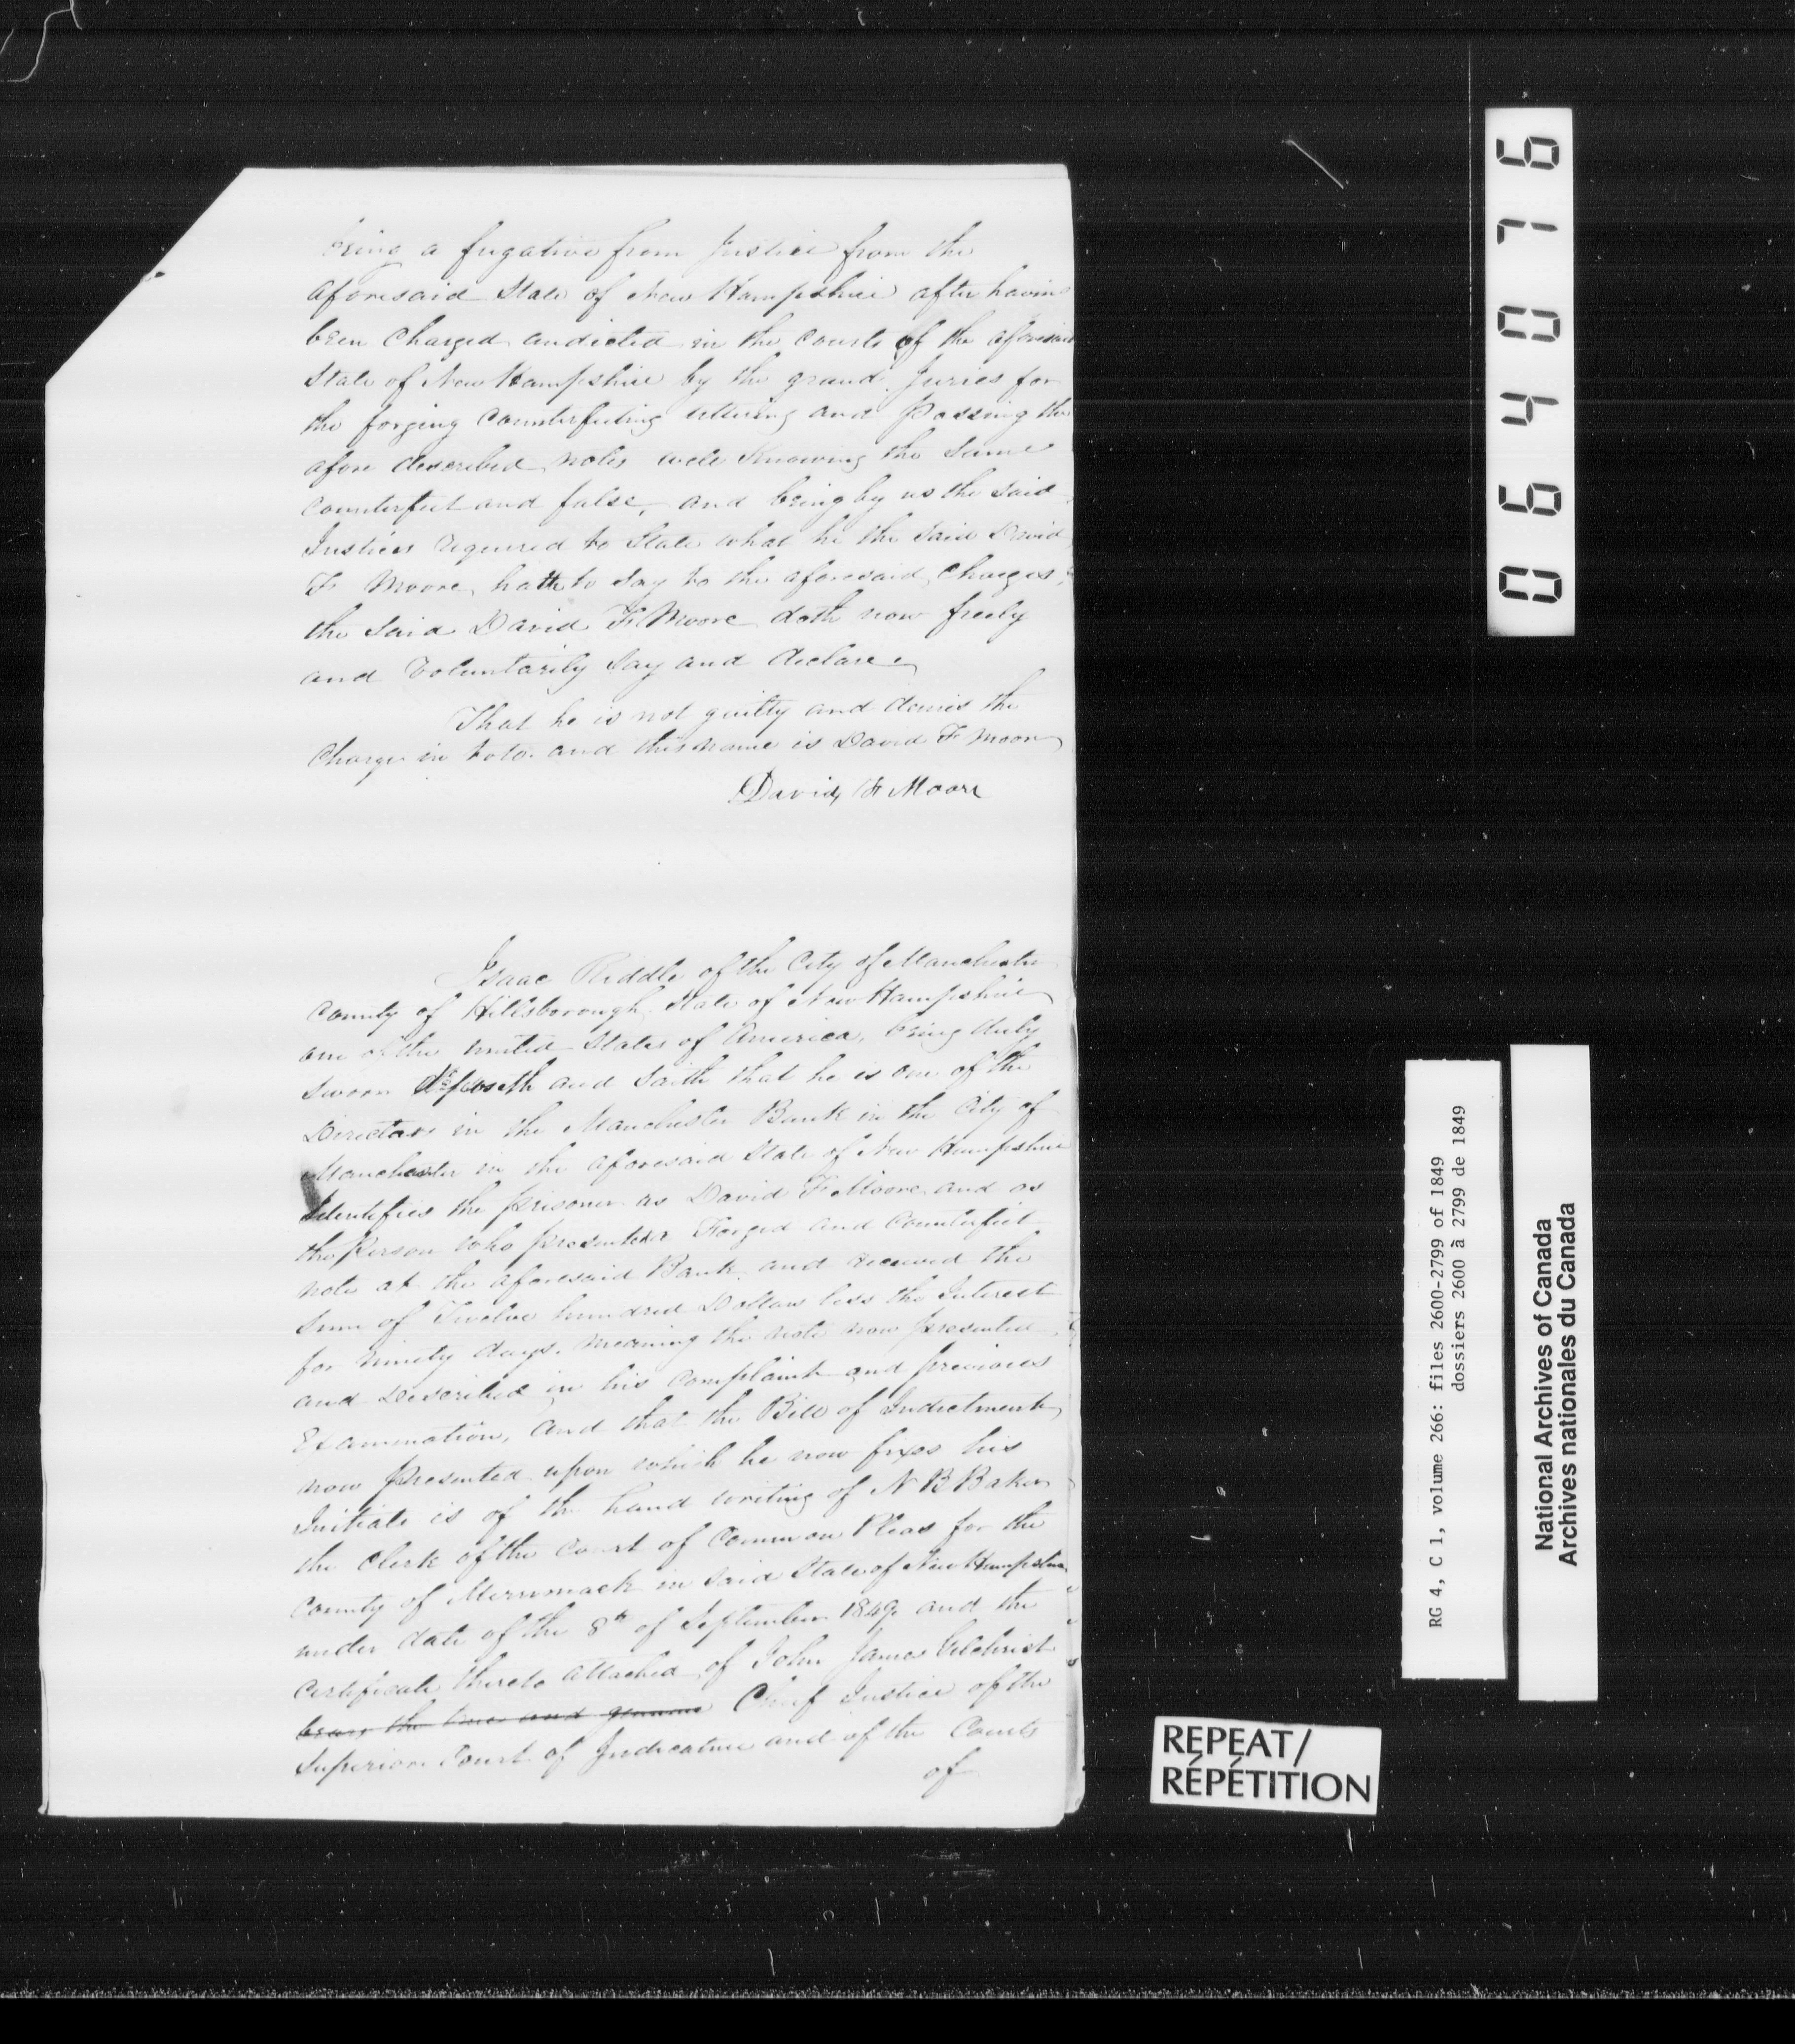 being a fugative from Justice from the
aforesaid State of New Hampshire after having
been Charged andicted in the Courts of the aforesaid
State of New Hampshire by the grand Juries for
the forging Counterfeiting uttering and Passing the
afore described notes well Knowing the Same
Counterfeit and false, and being by us the said
Justices required to State what he the Said David
F. Moore hath to Say to the aforesaid Charges,
the Said David F. Moore doth now freely
and Voluntarily Say and declare,
That he is not guilty and denies the
Charge in toto. and this name is David F Moore
David F Moore
Isaac Riddle of the City of Manchester
County of Hillsborough State of New Hampshire
one of the United States of America, being duly
Sworn deposeth and Saith that he is one of the
Directors in the Manchester Bank in the City of
Manchester in the aforesaid State of New Hampshire
Identifies the prisoner as David F. Moore and as
the Person who presented a Forged and Counterfeit
note at the aforesaid Bank, and received the
Sum of Twelve hundred Dollars less the Interest
for ninety days. meaning the note now presented
and Described in his Complaint and previous
Examination, and that the Bill of Indictment
now presented upon which he now fixes his
Initials is of the hand writing of N B Baker
the Clerk of the Court of Common Pleas for the
County of Merrimack in said State of New Hampshire
under date of the 8th of September 1849. and the
Certificate thereto attached of John James Gilchrist
bears the true and genuine Chief Justice of the
Superior Court of Judicature and of the Courts
of
064076
RG 4, C 1, volume 266: files 2600-2799 of 1849
dossiers 2600 à 2799 de 1849
National Archives of Canada
Archives nationales du Canada
REPEAT/
RÉPÉTITION